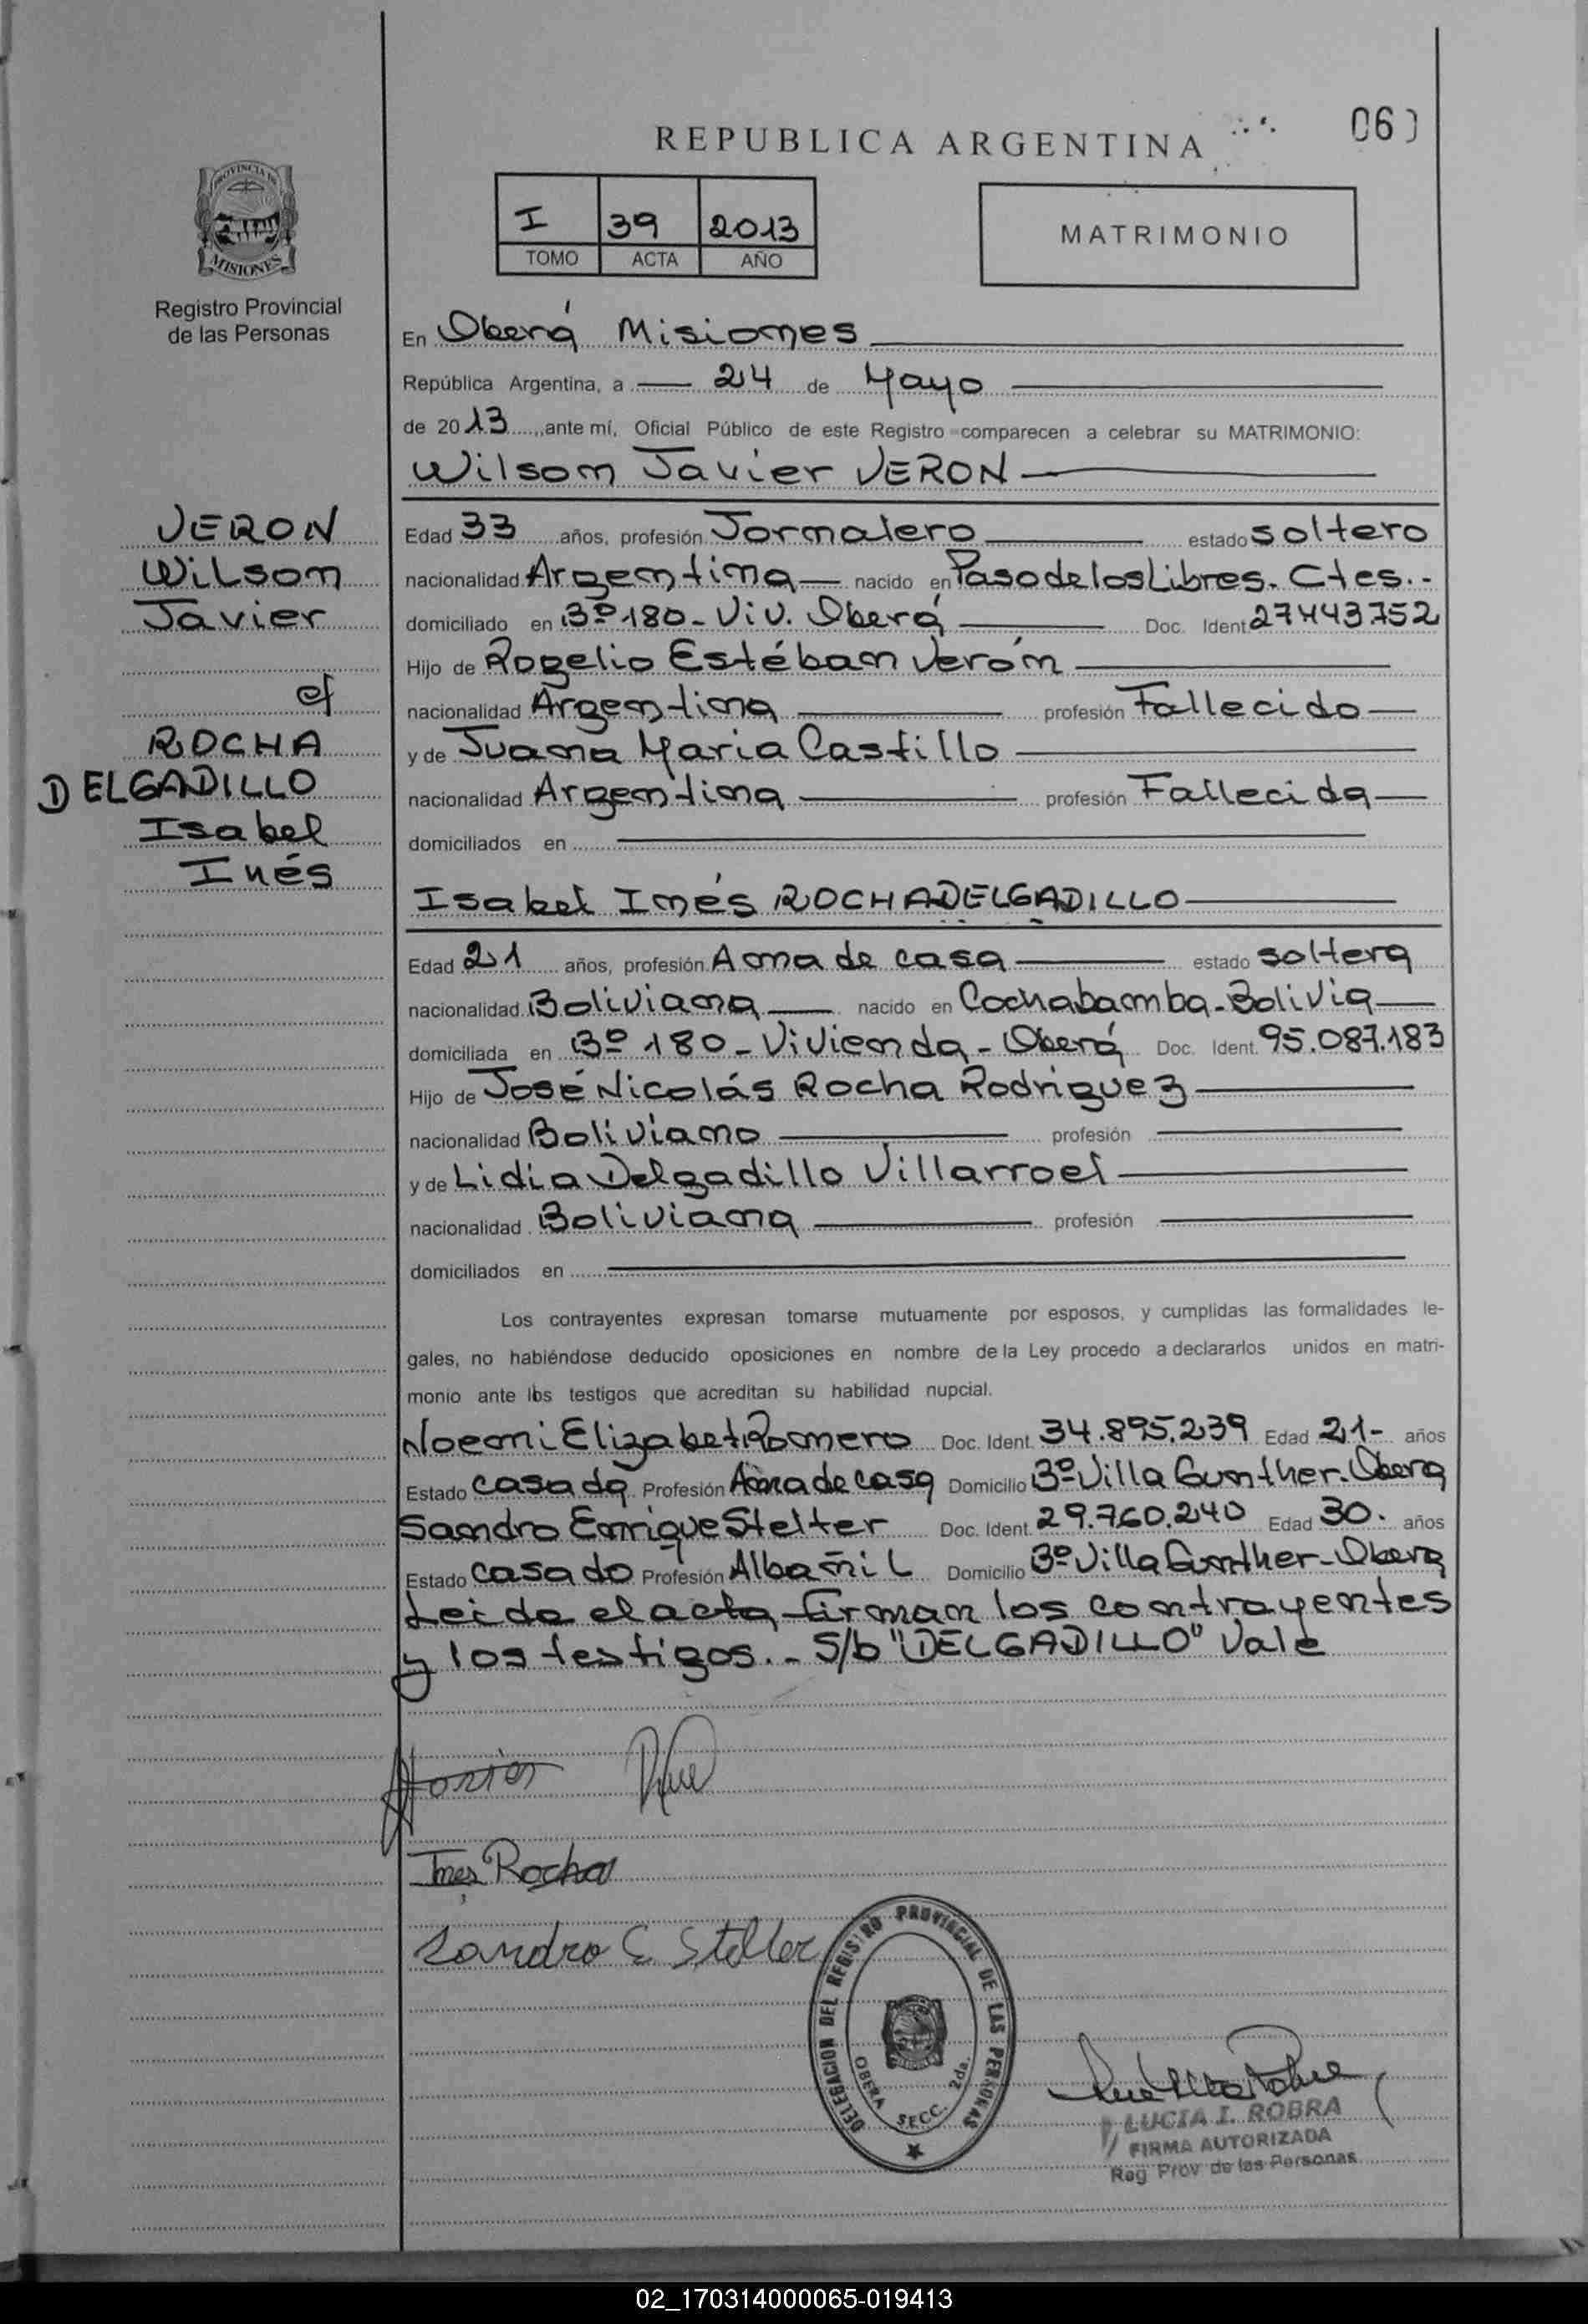 REPUBLICA ARGENTINA
PROVINCIA DE
MISIONES
Registro Provincial
de las Personas
I 39 2013
TOMO ACTA AÑO
MATRIMONIO
En Oberá Misiones
República Argentina, a 24 de Mayo
de 2013, ante mí, Oficial Público de este Registro comparecen a celebrar su MATRIMONIO:
Wilson Javier VERON
VERON
Wilson
Javier
c/
ROCHA
DELGADILLO
Isabel
Inés
Edad 33 años, profesión Jornalero estado soltero
nacionalidad Argentina nacido en Paso de los Libres. Ctes.-
domiciliado en Bº 180- Viv. Oberá Doc. Ident 27443752
Hijo de Rogelio Estéban Verón
nacionalidad Argentina profesión Fallecido
y de Juana Maria Castillo
nacionalidad Argentina profesión Fallecida
domiciliados en
Isabel Inés ROCHA DELGADILLO
Edad 21 años, profesión Ama de casa estado soltera
nacionalidad Boliviana nacido en Cochabamba-Bolivia
domiciliada en Bº 180-Vivienda-Oberá Doc. Ident. 95.087.183
Hijo de José Nicolás Rocha Rodriguez
nacionalidad Boliviano profesión
y de Lidia Delgadillo Villarroel
nacionalidad Boliviana profesión
domiciliados en
Los contrayentes expresan tomarse mutuamente por esposos, y cumplidas las formalidades le-
gales, no habiéndose deducido oposiciones en nombre de la Ley procedo a declararlos unidos en matri-
monio ante los testigos que acreditan su habilidad nupcial.
Noemi Elizabet Romero Doc. Ident. 34.895.239 Edad 21- años
Estado casada Profesión Ama de casa Domicilio Bº Villa Gunther-Obera
Sandro Enrique Stelter Doc. Ident. 29.760.240 Edad 30. años
Estado casado Profesión Albañil Domicilio Bº Villa Gunther-Obera
Leida el acta firman los contrayentes
y los testigos.- S/b "DELGADILLO" Vale
Ines Rocha
Sandro E Stelter
DELEGACION DEL REGISTRO PROVINCIAL DE LAS PERSONAS
OBERA SECC. 2da.
LUCIA I. ROBRA
FIRMA AUTORIZADA
Reg Prov de las Personas
02_170314000065-019413